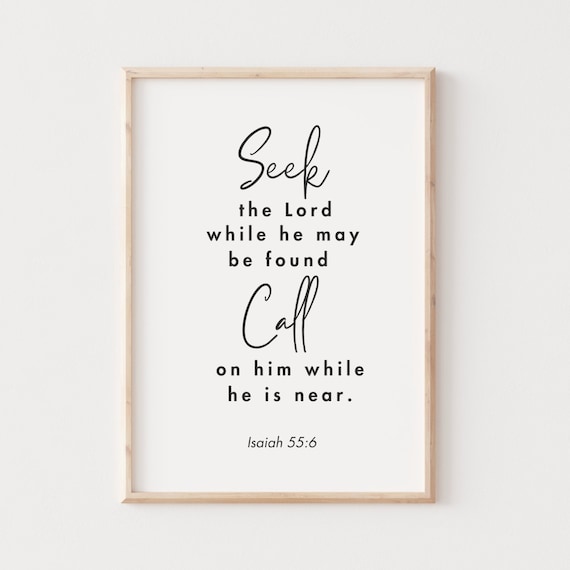 Seek
the Lord
while he may
be found
Call
on him while
he is near.
Isaiah 55:6